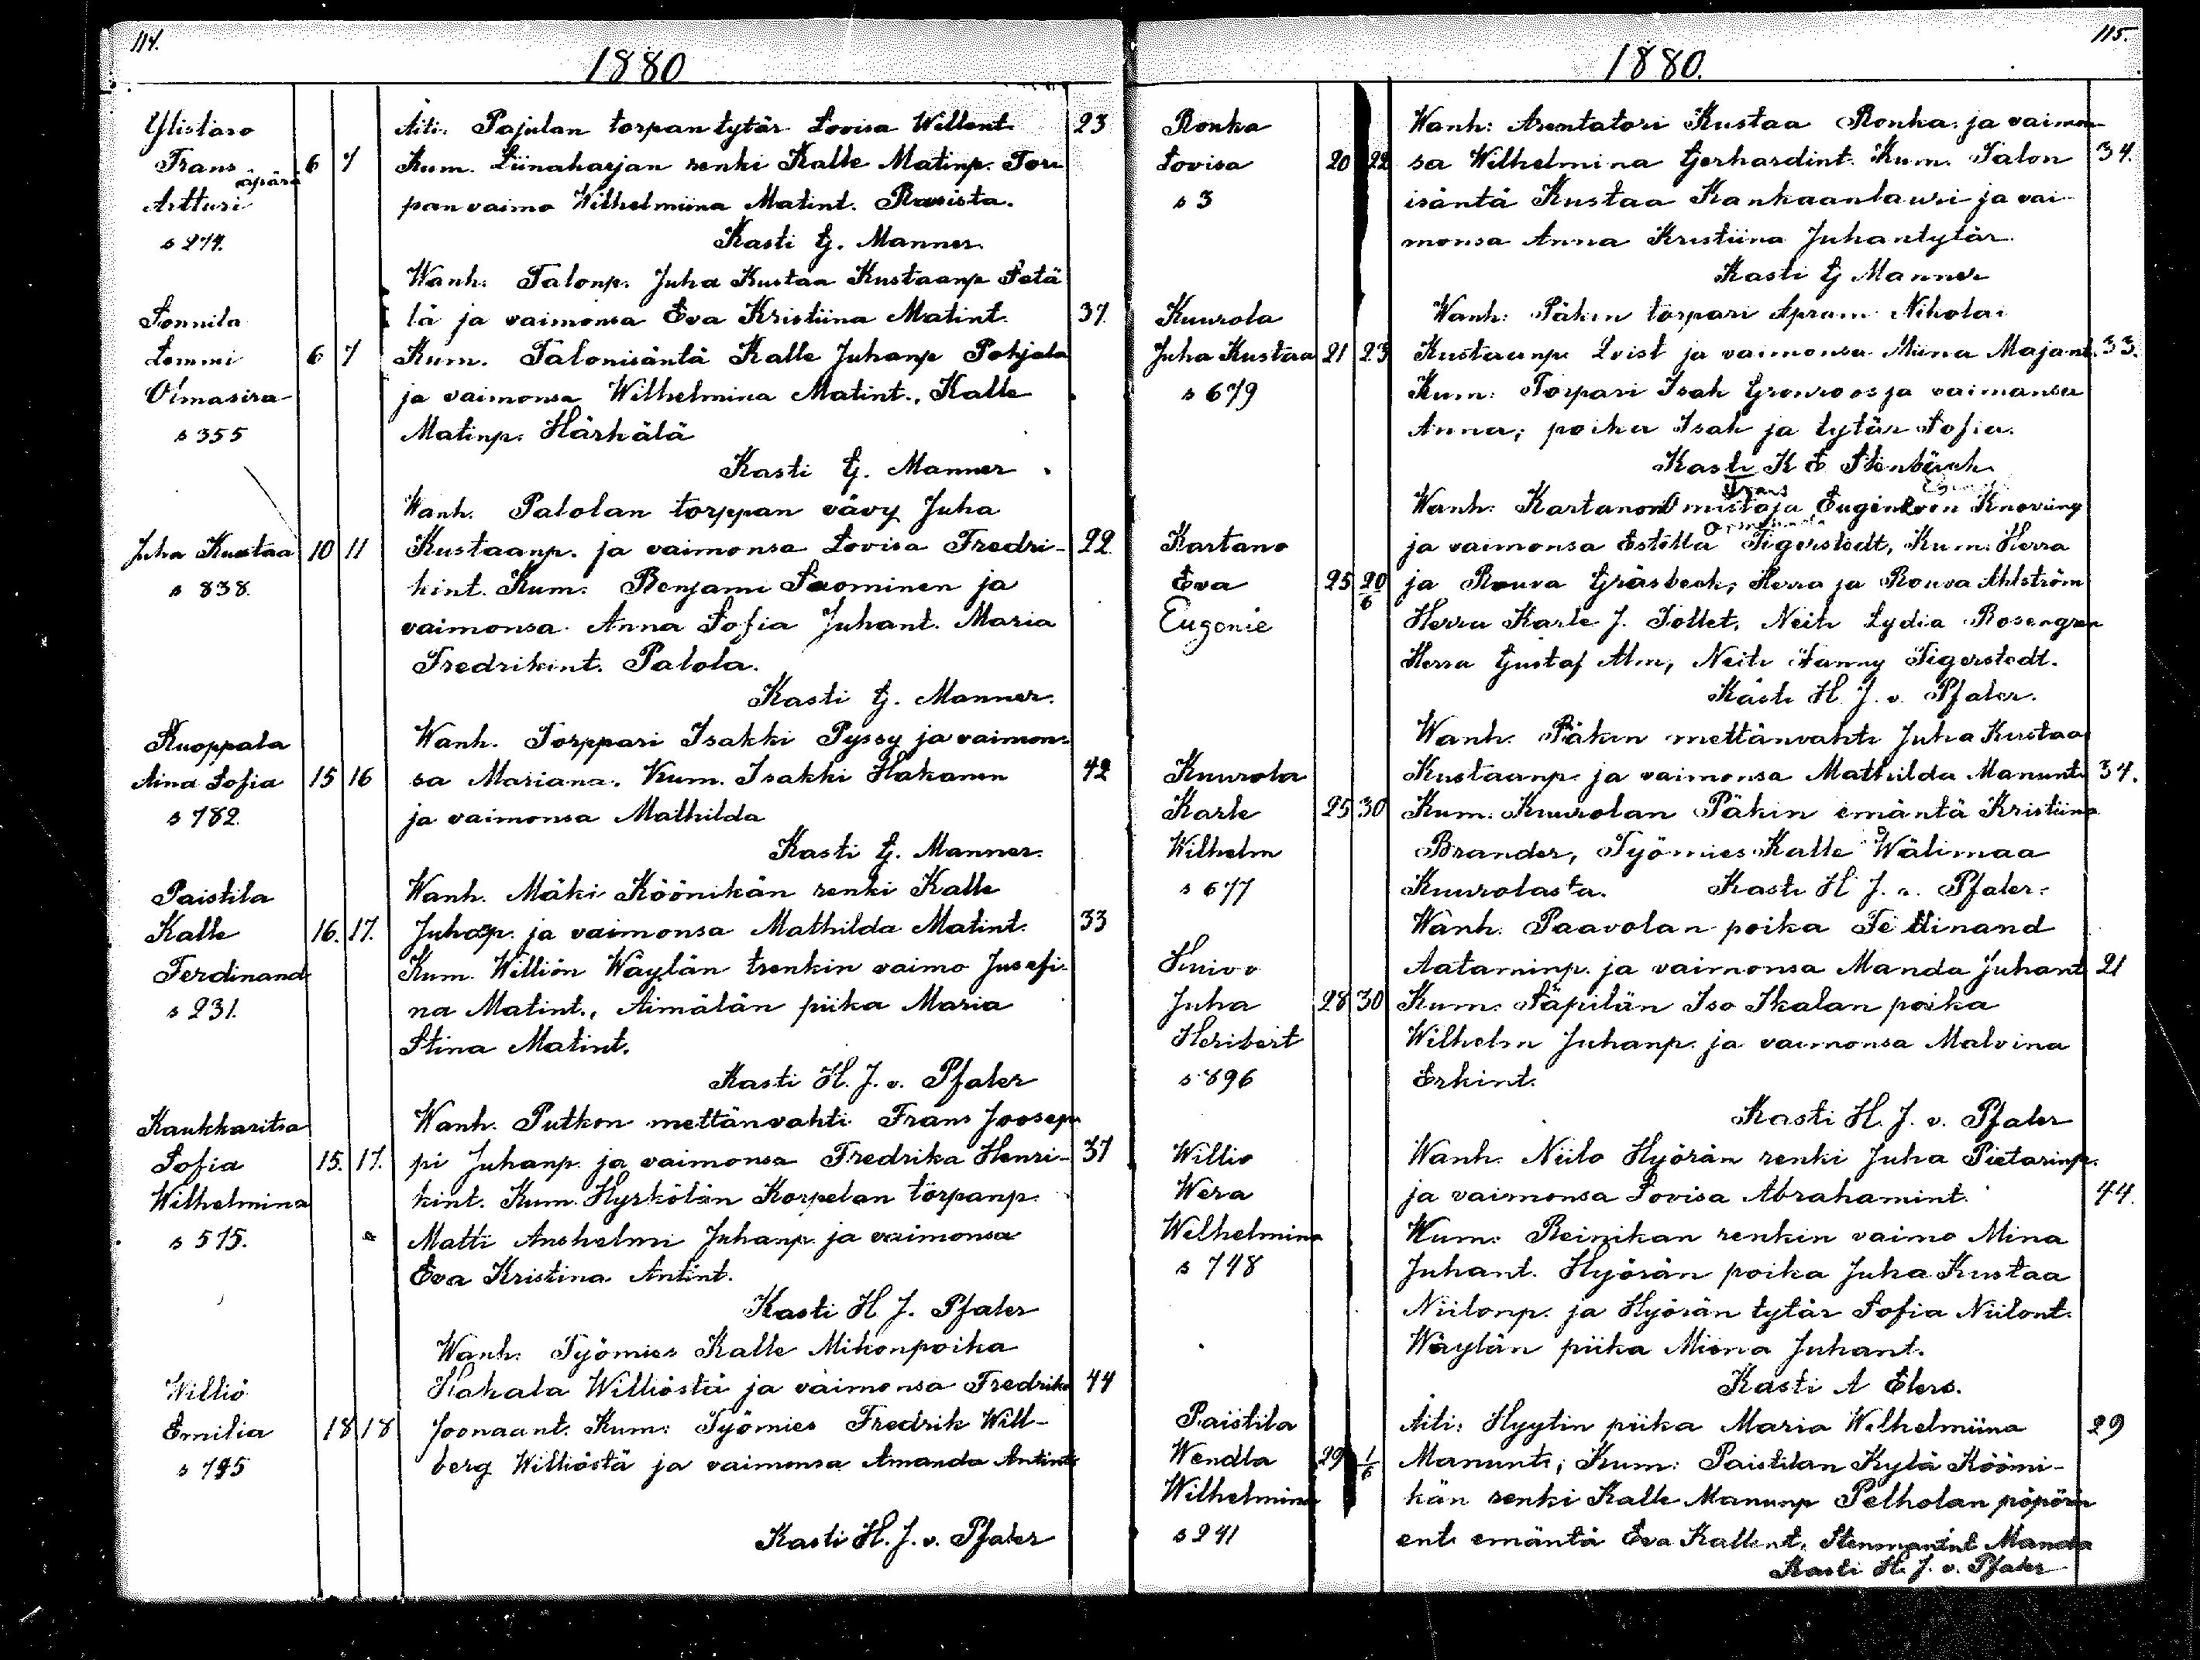 114.
1880
Ylistaro
Frans äpärä
Artturi
s 274.
6 7
Äiti. Pajulan torpan tytär Lovisa Willent. 23
Kum. Liinaharjan renki Kalle Matinp. Tor-
pan vaimo Wilhelmiina Matint. Rasista.
Kasti G. Manner.
Sonnila
Lommi
Oimasira
s 355
6 7
Wanh. Talonp. Juha Kustaa Kustaanp Setä
lä ja vaimonsa Eva Kristiina Matint. 37.
Kum. Talonisäntä Kalle Juhanp Pohjala
ja vaimonsa Wilhelmina Matint., Kalle
Matinp. Härhälä
Kasti G. Manner
Juha Kustaa
s 838.
10 11
Wanh. Palolan torppan vävy Juha
Kustaanp. ja vaimonsa Lovisa Fredri- 22.
kint. Kum. Benjami Suominen ja
vaimonsa Anna Sofia Juhant. Maria
Fredrikint. Palola.
Kasti G. Manner.
Kuoppala
Aina Sofia
s 782.
15 16
Wanh. Torppari Isakki Pyssy ja vaimon-
sa Mariana. Kum. Isakki Hakanen 42
ja vaimonsa Mathilda
Kasti G. Manner.
Paistila
Kalle
Ferdinand
s 231.
16. 17.
Wanh. Mäki Köönikän renki Kalle
Juhap. ja vaimonsa Mathilda Matint. 33
Kum. Williön Wäylän trenkin vaimo Jusefi-
na Matint., Aimälän piika Maria
Stina Matint.
Kasti H. J. v. Pfaler
Kaukkaritsa
Sofia
Wilhelmina
s 515.
15. 17.
Wanh. Putkon mettänvahti Frans Joosep-
pi Juhanp. ja vaimonsa Fredrika Henri- 37
kint. Kum. Hyrkölän Korpelan torpanp.
Matti Anshelmi Juhanp. ja vaimonsa
Eva Kristina Antint.
Kasti H J. Pfaler
Williö
Emilia
s 795
18 18
Wanh: Työmies Kalle Mikonpoika
Hakala Williöstä ja vaimonsa Fredrika 44
Joonaant. Kum: Työmies Fredrik Will-
berg Williöstä ja vaimonsa Amanda Antint.
Kasti H. J. v. Pfaler
115.
1880.
Ronka
Lovisa
s 3
20 22
Wanh: Arentatori Kustaa Ronka ja vaimon-
sa Wilhelmina Gerhardint. Kum. Talon 34.
isäntä Kustaa Kankaanlauri ja vai-
monsa Anna Kristiina Juhantytär.
Kasti G Manner
Kuurola
Juha Kustaa
s 679
21 23
Wanh: Päkin torpari Apram Nikolai
Kustaanp. Lvist ja vaimonsa Miina Majant. 33.
Kum: Torpari Isak Grönroos ja vaimansa
Anna; poika Isak ja tytär Sofia.
Kasti K E Stenbäck
Kartano
Eva
Eugenie
25 20/6
Wanh: Kartanon Omistaja Frans Eugen von Knorring
ja vaimonsa Estella Tigerstedt, Kum: Herra
ja Rouva Gräsbeck; Herra ja Rouva Ahlström
Herra Karle J. Tollet, Neiti Lydia Rosengren
Herra Gustaf Alm, Neiti Fanny Tigerstedt.
Kasti H. J. v. Pfaler.
Kuurola
Karle
Wilhelm
s 677
25 30
Wanh. Päkin mettänvahti Juha Kustaa
Kustaanp. ja vaimonsa Mathilda Manunt. 34.
Kum: Kuurolan Päkin emäntä Kristiina
Brander, Työmies Kalle Wälimaa
Kuurolasta. Kasti H J. v. Pfaler.
Juha
Heribert
s 896
28 30
Wanh. Paavolan poika Ferdinand
Aataminp. ja vaimonsa Manda Juhant. 21
Kum. Säpilän Iso Ikalan poika
Wilhelm Juhanp. ja vaimonsa Malvina
Erkint.
Kasti H. J. v. Pfaler
Willio
Wera
Wilhelmina
s 748
Wanh. Niilo Hyörän renki Juha Pietarinp.
ja vaimonsa Lovisa Abrahamint. 44.
Kum: Reinikan renkin vaimo Mina
Juhant. Hyörän poika Juha Kustaa
Niilonp. ja Hyörän tytär Sofia Niilont.
Wäylän piika Miina Juhant.
Kasti A Elers.
Paistila
Wendla
Wilhelmina
s 241
29 1/6
Äiti: Hyytin piika Maria Wilhelmiina 29
Manunt; Kum: Paistilan Kylä Kööni-
kän renki Kalle Manunp Pelholan
ent. emäntä Eva Kallent. Stenmanint Manda
Kasti H. J. v. Pfaler